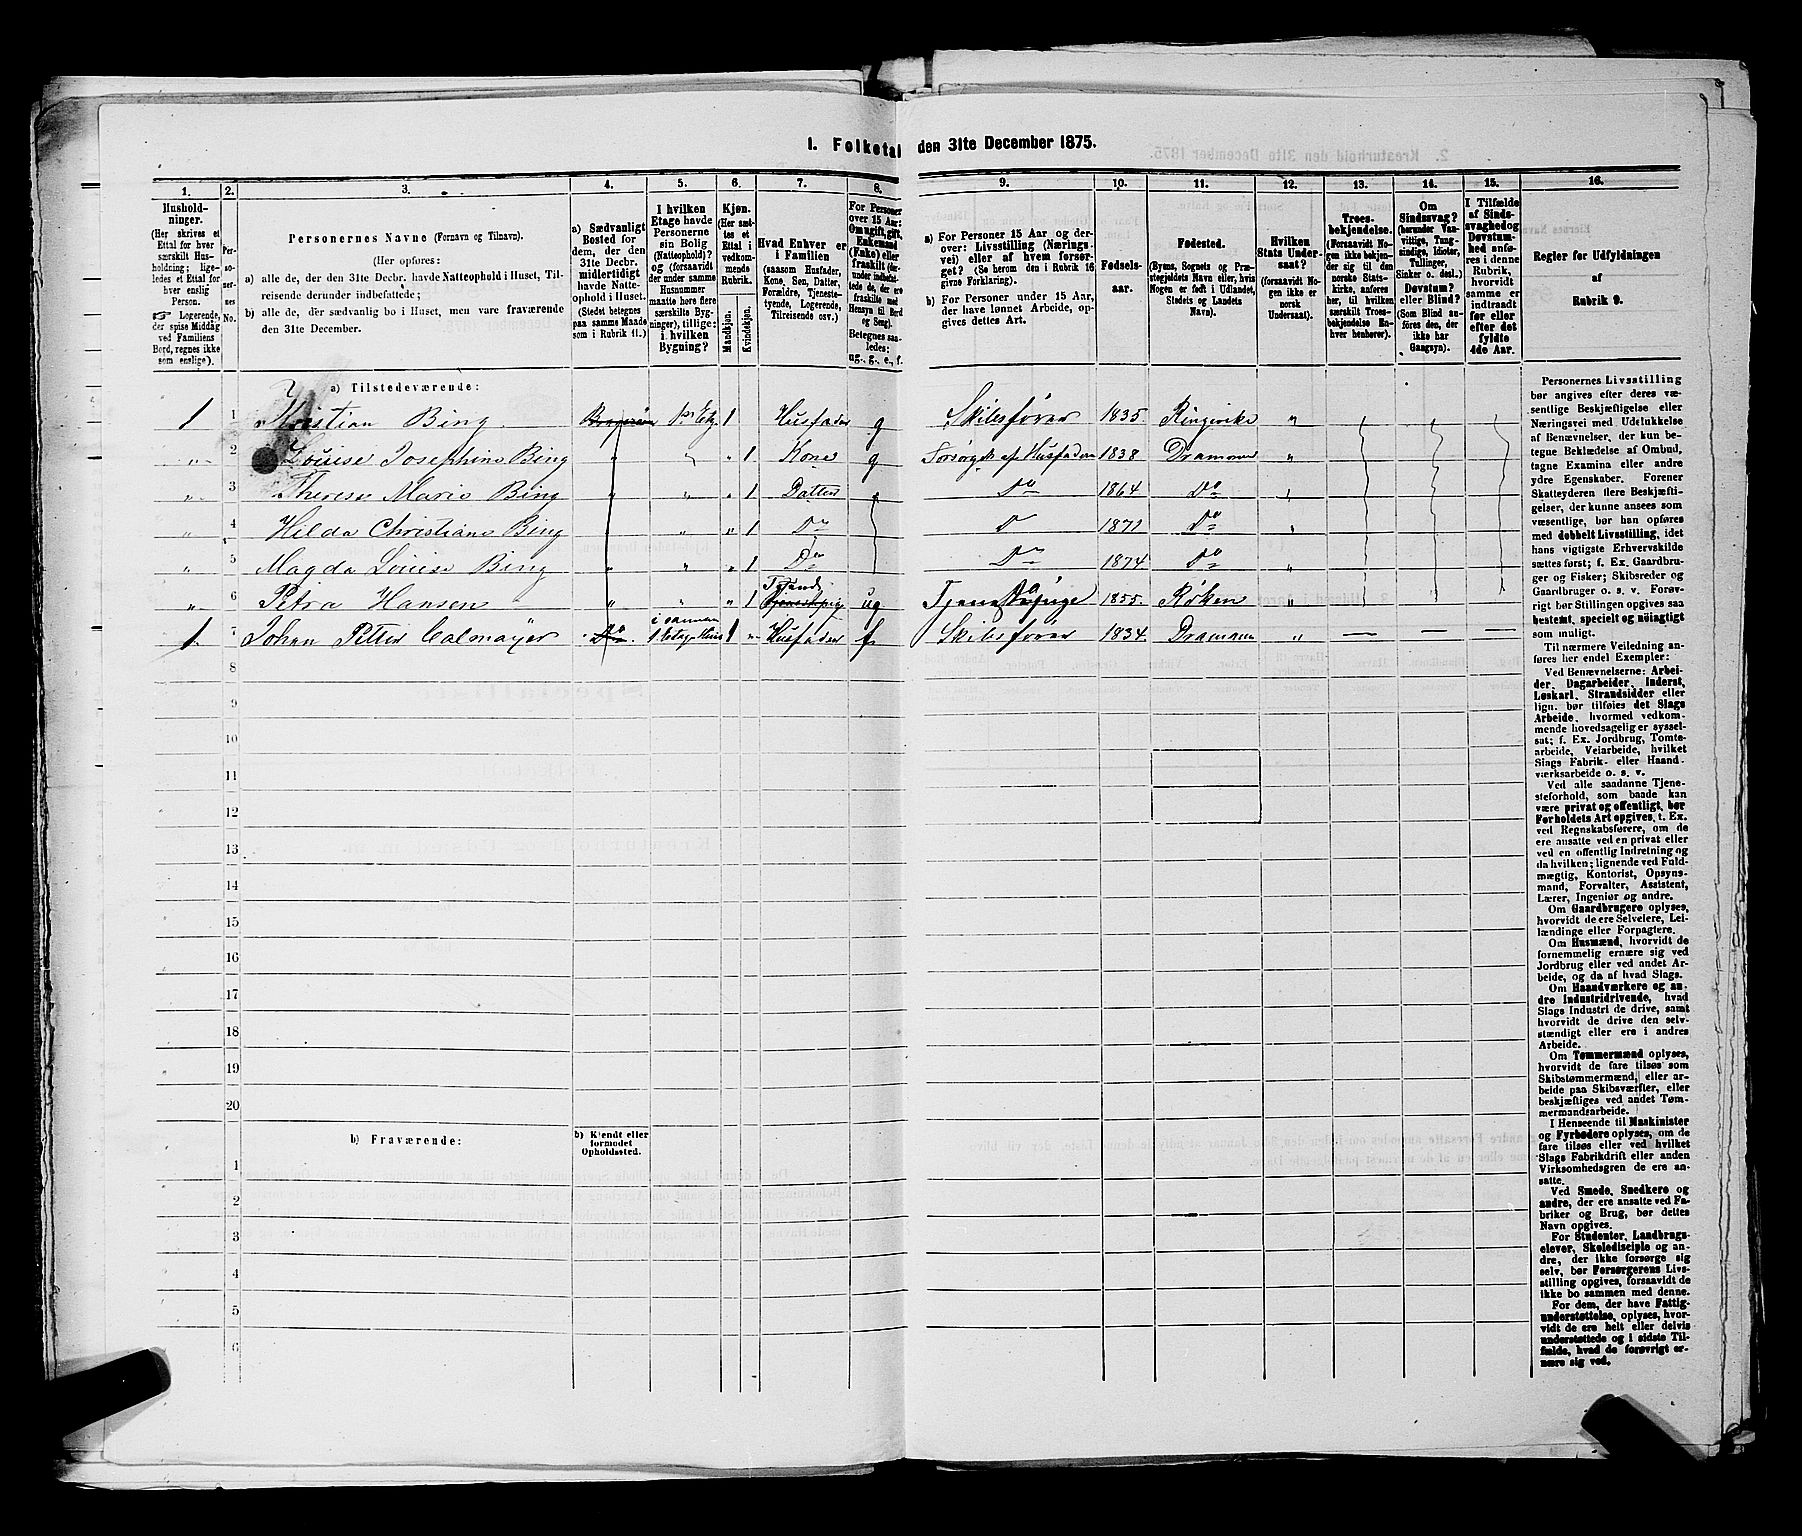 1. Folketal den 31te December 1875.
1. 2. 3. 4. 5. 6. 7. 8. 9. 10. 11. 12. 13. 14. 15. 16.
Hushold-
ninger.
(Her skrives et
Ettal for hver
særskilt Hus-
holdning; lige-
ledes et Ettal for
hver enslig
Person.
Logerende,
der spise Middag
ved Familiens
Bord, regnes ikke
som enslige).
Per-
so-
ner-
nes
No.
Personernes Navne (Fornavn og Tilnavn).
(Her opføres:
a) alle de, der den 31te Decbr. havde Natteophold i Huset, Til-
reisende derunder indbefattede;
b) alle de, der sædvanlig bo i Huset, men vare fraværende
den 31te December.
a) Sædvanligt
Bosted for
dem, der den
31te Decbr.
midlertidigt
havde Natte-
ophold i Huset.
(Stedet betegnes
paa samme Maade
som i Rubrik 11.)
I hvilken
Etage havde
Personerne
sin Bolig
(Natteophold)?
og (forsaavidt
der under samme
Husnummer
maatte høre flere
særskilte Byg-
ninger), tillige:
i hvilken
Bygning?
Kjøn.
(Her sæt-
tes et
Ettal i
vedkom-
mende
Rubrik.
Mandkjøn.
Kvindekjøn.
Hvad Enhver er
i Familien
(saasom Husfader,
Kone, Søn, Datter,
Forældre, Tjeneste-
tyende, Logerende,
Tilreisende osv.)
For Personer
over 15 Aar:
Om ugift, gift,
Enkemand
(Enke) eller
fraskilt
Betegnes saa-
ledes:
ug., g., e., f.
a) For Personer 15 Aar og der-
over: Livsstilling (Nærings-
vei) eller af hvem forsør-
get? (Se herom den i Rubrik 16
givne Forklaring).
b) For Personer under 15 Aar,
der have lønnet Arbeide, op-
gives dettes Art.
Fødsels-
aar.
Fødested.
(Byens, Sognets og Præ-
stegjeldets Navn eller, hvis
Nogen er født i Udlandet,
Stedets og Landets
Navn).
Hvilken
Stats Under-
saat?
(forsaavidt No-
gen ikke er
norsk
Undersaat).
Troes-
bekjendelse.
(Forsaavidt No-
gen ikke bekjen-
der sig til den
norske Stats-
kirke, anføres
her, til hvilken
særskilt Troes-
bekjendelse En-
hver henhører).
Om
Sindssvag?
(herunder Van-
vittige, Tung-
sindige, Idioter,
Tullinger,
Sinker o. desl.)
Døvstum?
eller Blind?
(Som Blind an-
føres den, der
ikke har
Gangsyn).
I Tilfælde
af Sinds-
svaghed og
Døvstum-
hed anfø-
res i denne
Rubrik,
hvorvidt
samme er
indtraadt
før eller
efter det
fyldte
4de Aar.
Regler for Udfyldningen
af
Rubrik 9.
a) Tilstedeværende:
1 1 Kristian Bing. 1ste Etg. 1 Husfader g Skibsfører 1835. Ringerike „
„ 2 Louise Josephine Bing „ „ 1 Kone g Forsørget af Husfaderen 1838 Drammen „
„ 3 Therese Marie Bing „ „ „ 1 Datter Do 1864 Do „
„ 4 Hilda Christiane Bing „ „ 1 Do Do 1871 Do „
„ 5 Magda Louise Bing „ „ 1 Do Do 1874 Do „
„ 6 Petra Hansen „ „ „ 1 Tyende ug 1855. Røken „
1. 7 Johan Petter Calmayer Do. i samme 1 etage Huus 1 „ Husfader f. Skibsfører 1834. Drammen „ — — —
8
9
10
11
12
13
14
15
16
17
18
19
20
b) Fraværende:
b) Kjendt eller
formodet
Opholdssted.
1
2
3
4
5
6
Personernes Livsstilling
bør angives efter deres væ-
sentlige Beskjæftigelse eller
Næringsvei med Udelukkelse
af Benævnelser, der kun be-
tegne Beklædelse af Ombud,
tagne Examina eller andre
ydre Egenskaber. Forener
Skatteyderen flere Beskjæfti-
gelser, der kunne ansees som
væsentlige, bør han opføres
med dobbelt Livsstilling, idet
hans vigtigste Erhvervskilde
sættes først; f. Ex. Gaardbru-
ger og Fisker; Skibsreder og
Gaardbruger o. s. v. Forøv-
rigt bør Stillingen opgives saa
bestemt, specielt og nøiagtigt
som muligt.
Til nærmere Veiledning an-
føres her endel Exempler:
Ved Benævnelserne: Arbei-
der, Dagarbeider, Inderst,
Løskarl, Strandsidder eller
lign. bør tilføies det Slags
Arbeide, hvormed vedkom-
mende hovedsagelig er syssel-
sat; f. Ex. Jordbrug, Tomte-
arbeide, Veiarbeide, hvilket
Slags Fabrik- eller Haand-
værksarbeide o. s. v.
Ved alle saadanne Tjene-
steforhold, som baade kan
være privat og offentligt, bør
Forholdets Art opgives, t. Ex.
ved Regnskabsførere, om de
ere ansatte ved en privat eller
ved en offentlig Indretning og
da hvilken; lignende ved Fuld-
mægtig, Kontorist, Opsyns-
mand, Forvalter, Assistent,
Lærer, Ingeniør og andre.
Om Gaardbrugere oplyses,
hvorvidt de ere Selveiere, Lei-
lændinge eller Forpagtere.
Om Husmænd, hvorvidt de
fornemmelig ernære sig ved
Jordbrug eller ved andet Ar-
beide, og da af hvad Slags.
Om Haandværkere og an-
dre Industridrivende, hvad
Slags Industri de drive, samt
hvorvidt de drive den selv-
stændigt eller ere i andres
Arbeide.
Om Tømmermænd oplyses,
hvorvidt de fare tilsøs som
Skibstømmermænd, eller ar-
beide paa Skibsværfter, eller
beskjæftiges ved andet Tøm-
mermandsarbeide.
I Henseende til Maskinister
og Fyrbødere oplyses, om de
fare tilsøs eller ved hvilket
Slags Fabrikdrift eller anden
Virksomhedsgren de ere an-
satte.
Ved Smede, Snedkere og
andre, der ere ansatte ved Fa-
briker og Brug, bør dettes
Navn opgives.
For Studenter, Landbrugs-
elever, Skoledisciple og an-
dre, der ikke forsørge sig
selv, bør Forsørgerens Livs-
stilling opgives, forsaavidt de
ikke bo sammen med denne.
For dem, der have Fattig-
understøttelse, oplyses, hvor-
vidt de ere helt eller delvis
understøttede og i sidste Til-
fælde, hvad de forøvrigt er-
nære sig ved.